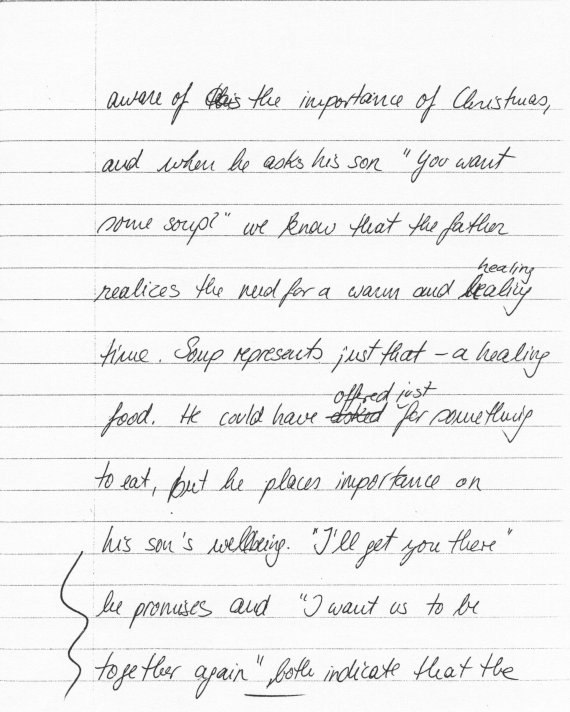 aware of this the importance of Christmas,
and when he asks his son "You want
some soup?" we know that the father
healing
realizes the need for a warm and healing
time. Soup represents just that – a healing
offered just
food. He could have asked for something
to eat, but he places importance on
his son's wellbeing. "I'll get you there"
he promises and "I want us to be
together again", both indicate that the